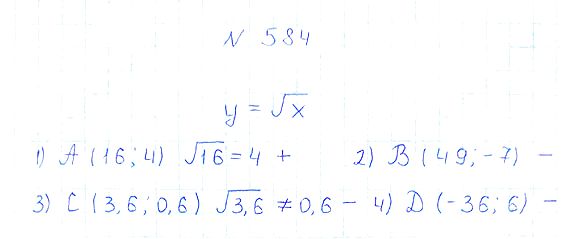 N 584
y = √x
1) A (16; 4) √16 = 4 + 2) B (49; -7) –
3) C (3,6; 0,6) √3,6 ≠ 0,6 – 4) D (-36; 6) –